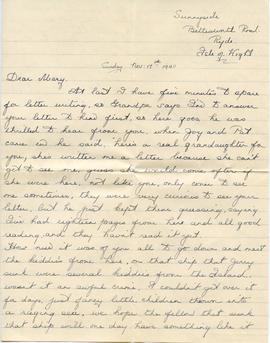 Sunnyside
Bettesworth Road.
Ryde
Isle of Wight
Sunday Nov. 17th 1940
Dear Mary.
At last I have five minutes to spare
for letter writing, so Grandpa says I'd to answer
your letter to him first, so here goes he was
thrilled to hear from you, when Joy and Pat
came in he said, here's a real granddaughter for
you, she's written me a letter because she can't
get to see me, guess she would come often if
she were here, not like you, only come to see
me sometimes, they were very curious to see your
letter, but he just kept them guessing, saying
have had eighteen pages from her and all good
reading, and they haven't read it yet.
How nice it was of you all to go down and meet
the kiddies from here, on that ship that Jerry
sunk were several kiddies from the Island,
wasn't it an awful crime. I couldn't get over it
for days, just fancy little children thrown into
a raging sea, we hope the fellow that sunk
that ship will one day have something like it